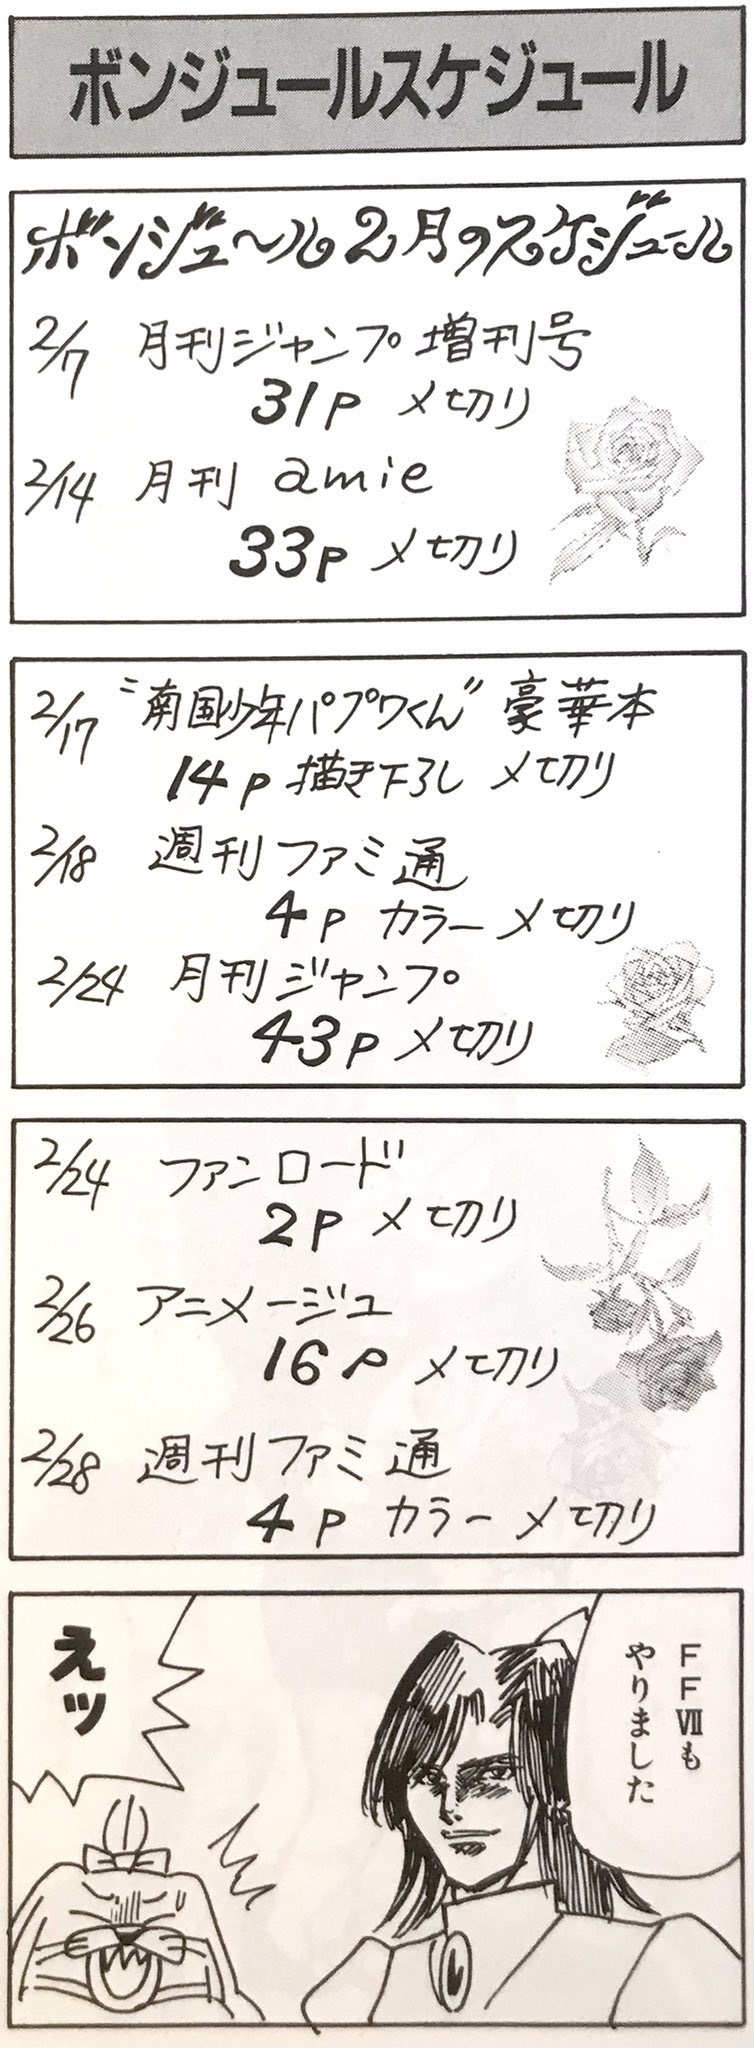 ボンジュールスケジュール
ボンジュ〜ル2月のスケジュール
2/7 月刊ジャンプ増刊号
31P 〆切り
2/14 月刊 amie
33P 〆切り
2/17 〝南国少年パプワくん〟豪華本
14P 描き下ろし 〆切り
2/18 週刊ファミ通
4P カラー 〆切り
2/24 月刊ジャンプ
43P 〆切り
2/24 ファンロード
2P 〆切り
2/26 アニメージュ
16P 〆切り
2/28 週刊ファミ通
4P カラー 〆切り
FFⅦも
やりました
えッ